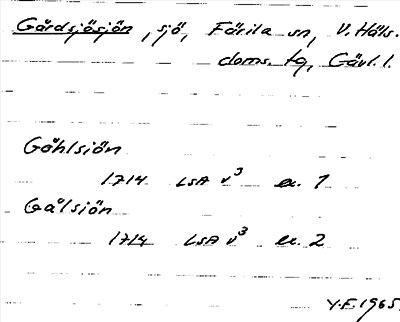 Gårdsjösjön, sjö, Färila sn, V. Häls.
doms. tg, Gävl. l.
Gåhlsiön
1714 LSA v³ a. 1
Gålsiön
1714 LSA v³ a. 2
Y.F. 1965.